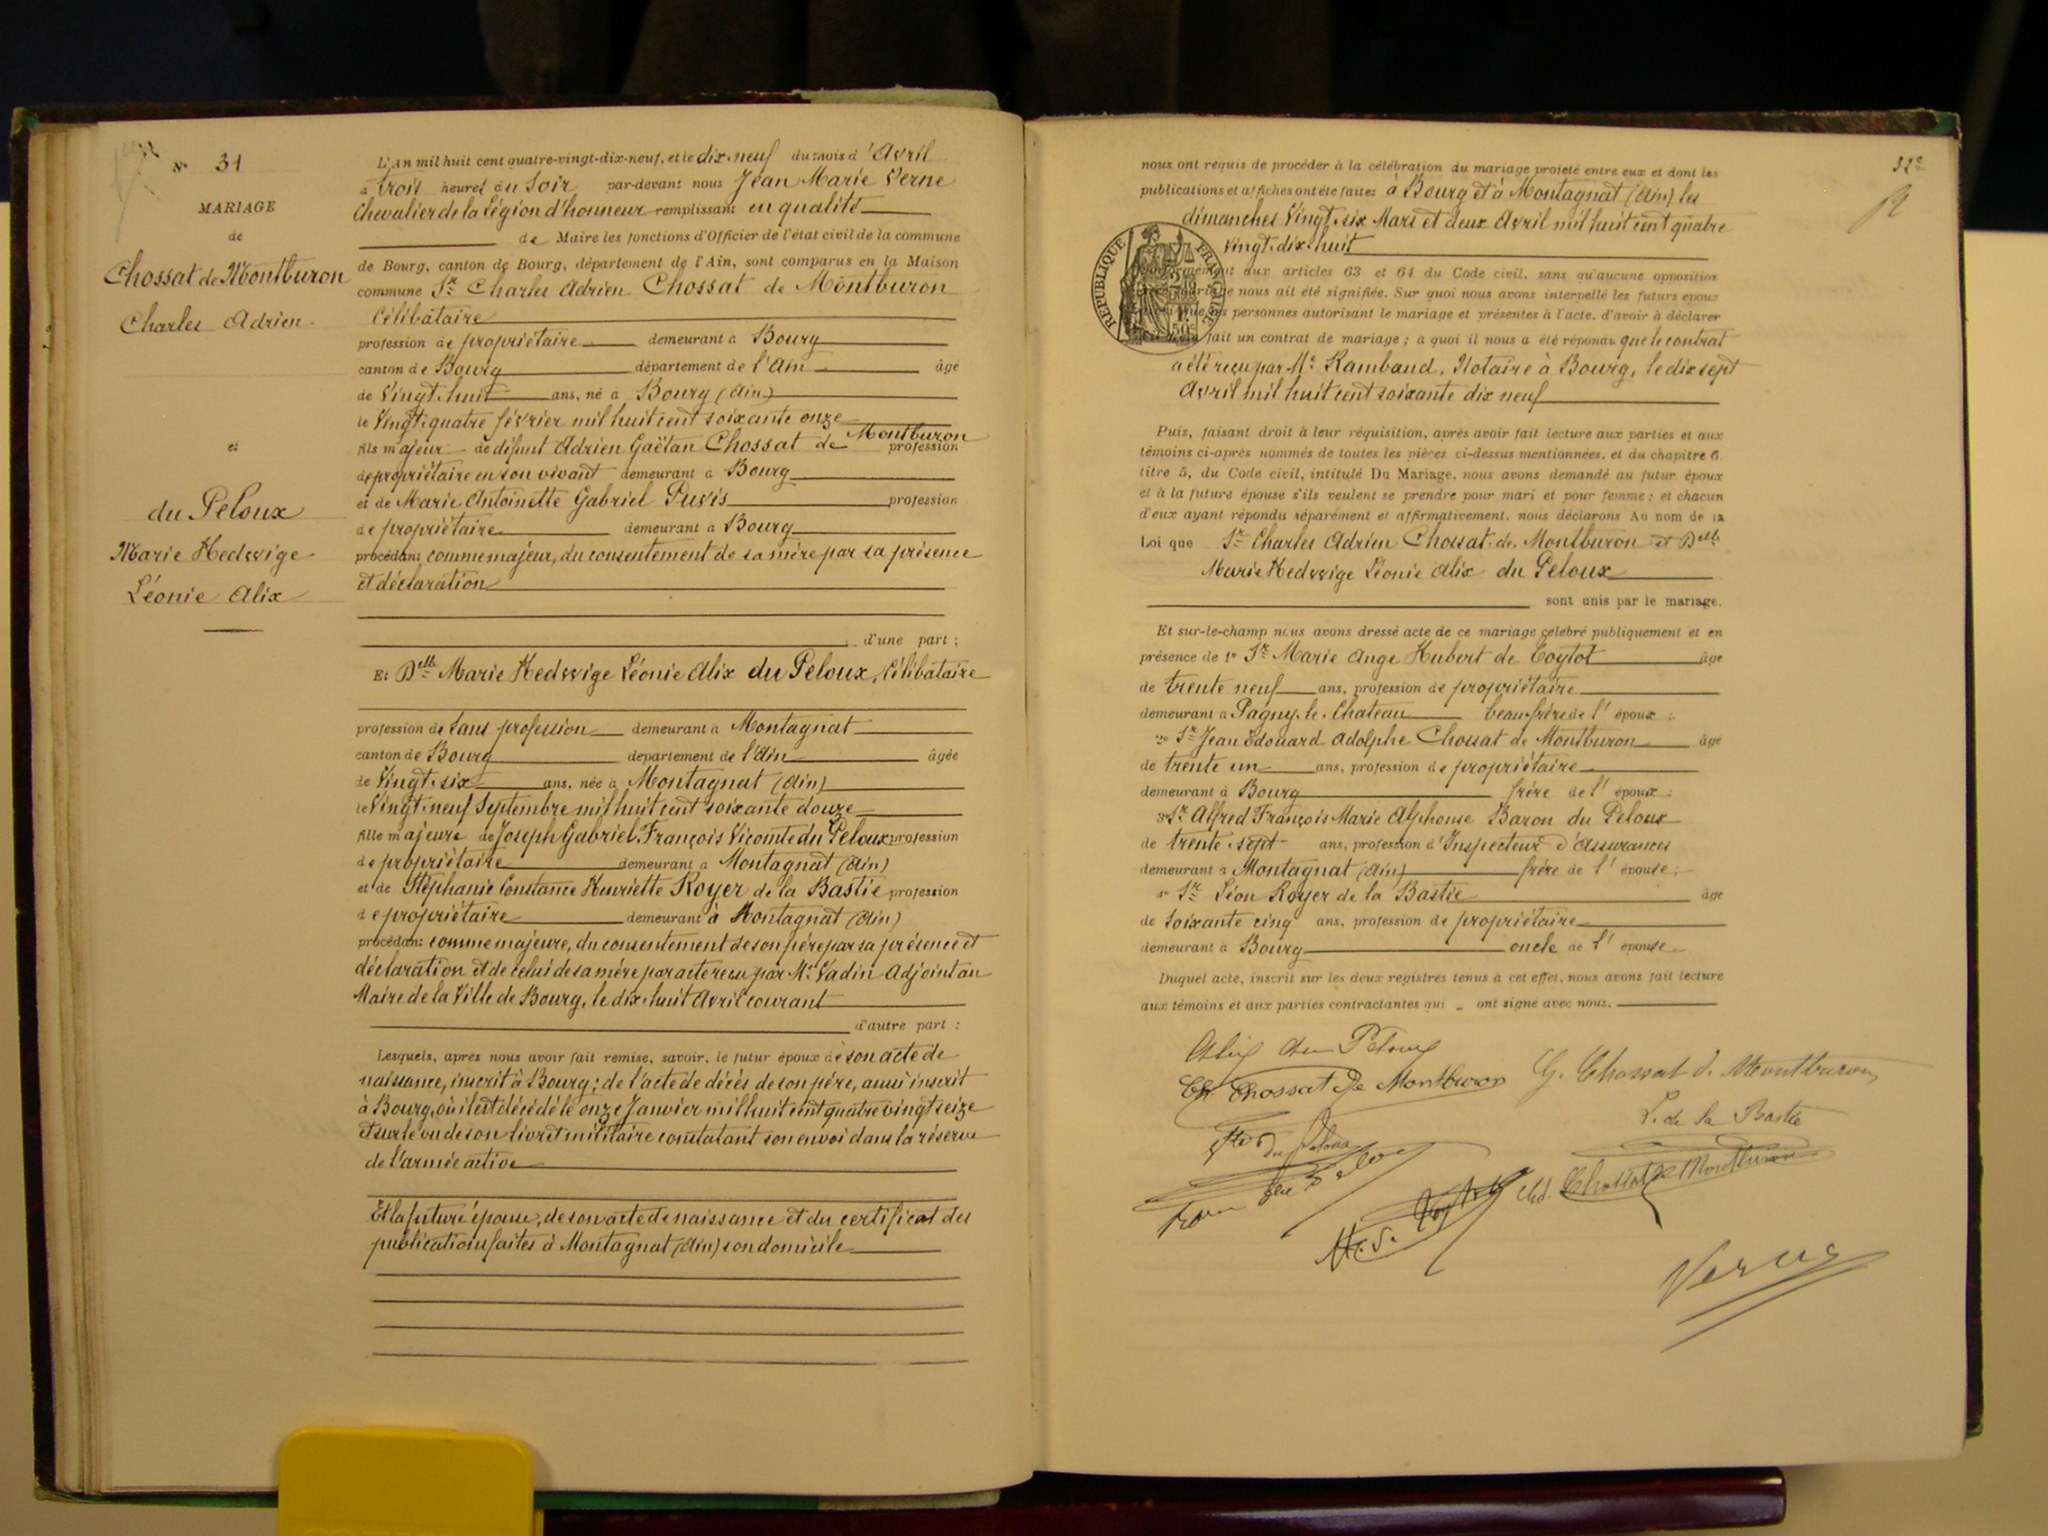 N° 31
MARIAGE
de
Chossat de Montburon
Charles Adrien
et
du Peloux
Marie Hedwige
Léonie Alix
L'An mil huit cent quatre-vingt-dix-neuf, et le dix-neuf du mois d'Avril
à trois heures du Soir par-devant nous Jean Marie Verne
Chevalier de la Légion d'honneur remplissant en qualité
de Maire les fonctions d'Officier de l'état civil de la commune
de Bourg, canton de Bourg, département de l'Ain, sont comparus en la Maison
commune Sr Charles Adrien Chossat de Montburon
Célibataire
profession de propriétaire demeurant à Bourg
canton de Bourg département de l'Ain âgé
de Vingt-huit ans, né à Bourg (Ain)
le Vingt-quatre février mil huit cent soixante onze
fils majeur de défunt Adrien Gaëtan Chossat de Montburon profession
de propriétaire en son vivant demeurant à Bourg
et de Marie Antoinette Gabriel Puvis profession
de propriétaire demeurant à Bourg
procédant comme majeur, du consentement de sa mère par sa présence
et déclaration
d'une part ;
Et Delle Marie Hedwige Léonie Alix du Peloux, Célibataire
profession de Sans profession demeurant à Montagnat
canton de Bourg département de l'Ain âgée
de Vingt-six ans, née à Montagnat (Ain)
le Vingt-neuf Septembre mil huit cent soixante douze
fille majeure de Joseph Gabriel François Vicomte du Peloux profession
de propriétaire demeurant à Montagnat (Ain)
et de Stéphanie Constance Henriette Royer de la Bastie profession
de propriétaire demeurant à Montagnat (Ain)
procédant comme majeure, du consentement de son père par sa présence et
déclaration et de celui de sa mère par acte reçu par Mr Vadin Adjoint au
Maire de la Ville de Bourg, le dix-huit Avril courant
d'autre part :
Lesquels, après nous avoir fait remise, savoir, le futur époux de son acte de
naissance, inscrit à Bourg ; de l'acte de décès de son père, aussi inscrit
à Bourg, où il est décédé le onze Janvier mil huit cent quatre vingt seize
et sur le vu de son livret militaire constatant son envoi dans la réserve
de l'armée active
Et la future épouse, de son acte de naissance et du certificat des
publications faites à Montagnat (Ain) son domicile
32e
nous ont requis de procéder à la célébration du mariage projeté entre eux et dont les
publications et affiches ont été faites à Bourg et à Montagnat (Ain) les
dimanches Vingt-six Mars et deux Avril mil huit cent quatre
vingt-dix-huit
RÉPUBLIQUE FRANÇAISE
conformément aux articles 63 et 64 du Code civil, sans qu'aucune opposition
nous ait été signifiée. Sur quoi nous avons interpellé les futurs époux
personnes autorisant le mariage et présentes à l'acte, d'avoir à déclarer
fait un contrat de mariage ; à quoi il nous a été répondu que le contrat
a été reçu par Me Rambaud, Notaire à Bourg, le dix sept
Avril mil huit cent soixante dix neuf
Puis, faisant droit à leur réquisition, après avoir fait lecture aux parties et aux
témoins ci-après nommés de toutes les pièces ci-dessus mentionnées, et du chapitre 6,
titre 5, du Code civil, intitulé Du Mariage, nous avons demandé au futur époux
et à la future épouse s'ils veulent se prendre pour mari et pour femme ; et chacun
d'eux ayant répondu séparément et affirmativement, nous déclarons Au nom de la
Loi que Sr Charles Adrien Chossat de Montburon et Delle
Marie Hedwige Léonie Alix du Peloux
sont unis par le mariage.
Et sur-le-champ nous avons dressé acte de ce mariage célébré publiquement et en
présence de 1° Sr Marie Ange Hubert de Toytot âgé
de trente neuf ans, profession de propriétaire
demeurant à Pagny-le-Chateau beau-frère de l'époux ;
2° Sr Jean Edouard Adolphe Chossat de Montburon âgé
de trente un ans, profession de propriétaire
demeurant à Bourg frère de l'époux ;
3° Sr Alfred François Marie Alphonse Baron du Peloux
de trente-sept ans, profession d'Inspecteur d'Assurances
demeurant à Montagnat (Ain) frère de l'épouse ;
4° Sr Léon Royer de la Bastie âgé
de soixante cinq ans, profession de propriétaire
demeurant à Bourg oncle de l'épouse
Duquel acte, inscrit sur les deux registres tenus à cet effet, nous avons fait lecture
aux témoins et aux parties contractantes qui ont signé avec nous.
Alix du Peloux
Ch Chossat de Montburon
G. Chossat de Montburon
L. de la Bastie
du Peloux
Ad. Chossat de Montburon
Verne